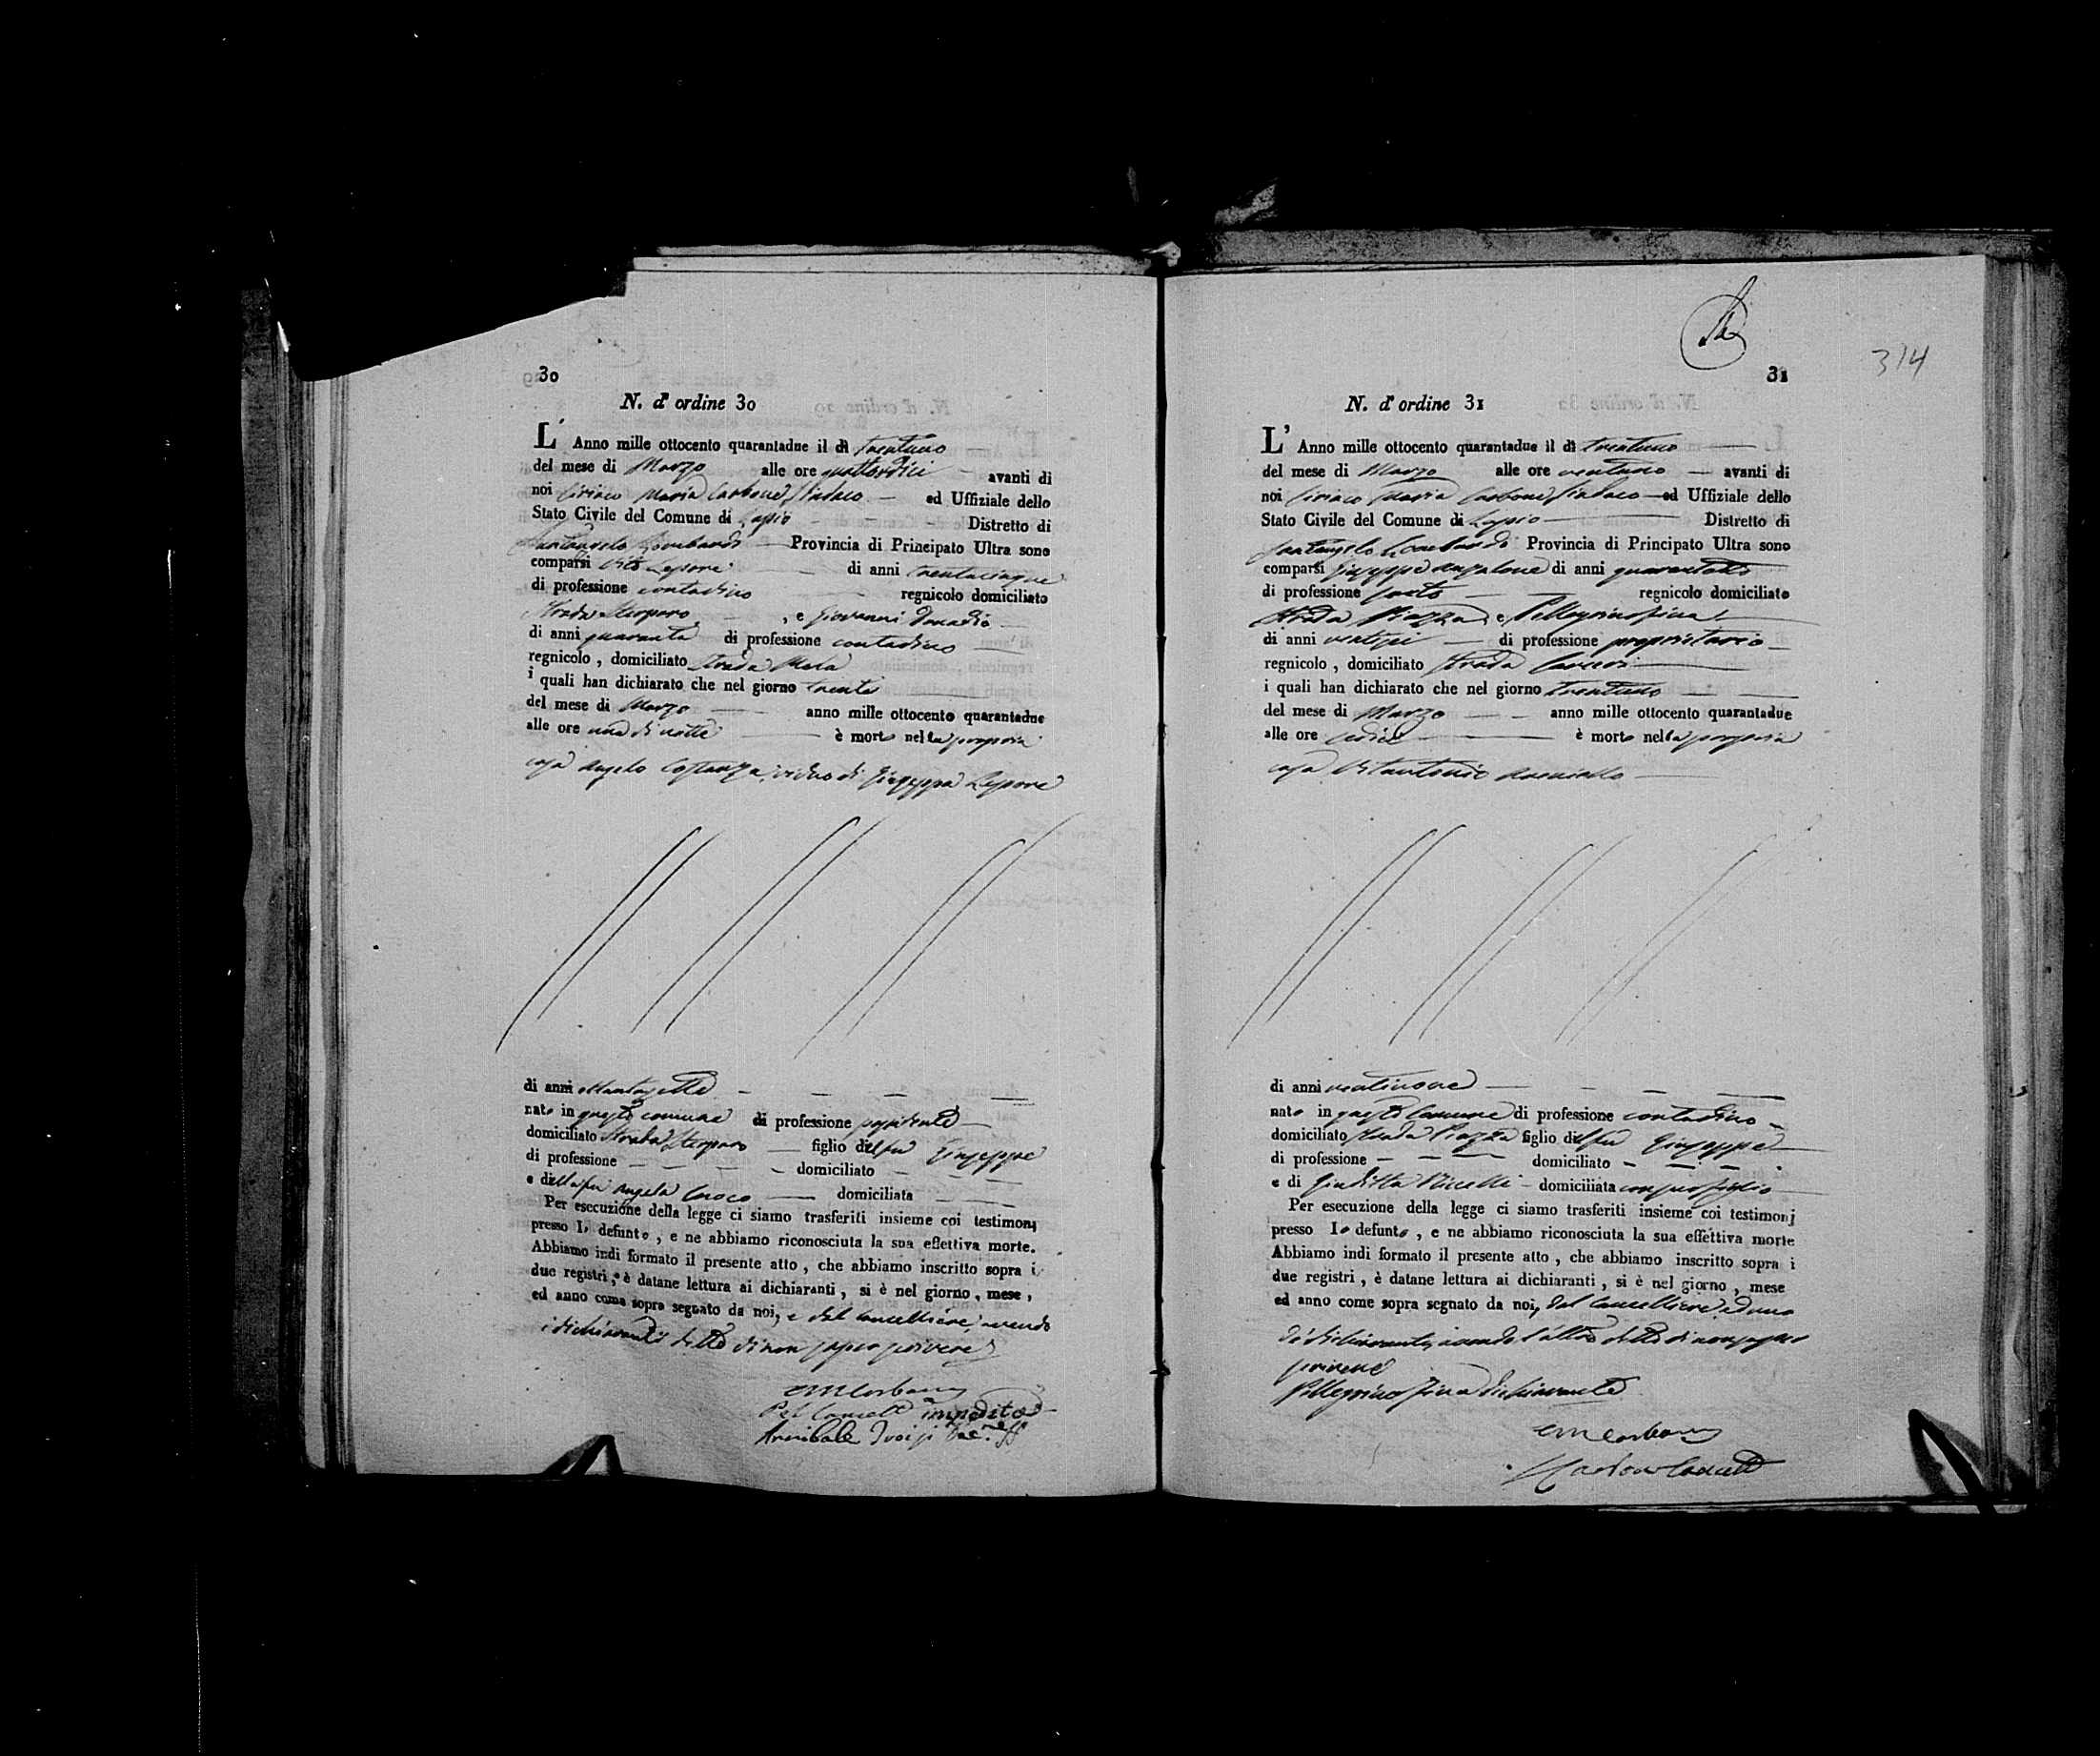 30
N. d'ordine 30
L' Anno mille ottocento quarantadue il dì trentuno
del mese di Marzo alle ore quattordici avanti di
noi Ciriaco Maria Carbone Sindaco ed Uffiziale dello
Stato Civile del Comune di Lapio Distretto di
Santangelo Lombardi Provincia di Principato Ultra sono
comparsi Vito Lepore di anni trentacinque
di professione contadino regnicolo domiciliato
Strada , e Giovanni Donadio
di anni quaranta di professione contadino
regnicolo , domiciliato Strada Mela
i quali han dichiarato che nel giorno trenta
del mese di Marzo anno mille ottocento quarantadue
alle ore una di notte è morto nella propria
casa Angelo Costanza, viduo di Giuseppa Lepore
di anni
nato in questo comune di professione
domiciliato Strada figlio del fu Giuseppe
di professione domiciliato
e della fu Angela Cuoco domiciliata
Per esecuzione della legge ci siamo trasferiti insieme coi testimonj
presso lo defunto , e ne abbiamo riconosciuta la sua effettiva morte.
Abbiamo indi formato il presente atto , che abbiamo inscritto sopra i
due registri , e datane lettura ai dichiaranti , si è nel giorno , mese ,
ed anno come sopra segnato da noi, e dal Cancelliere, avendo
i dichiaranti detto di non saper scrivere
CMCarbone
Pel Cancell.e impedito
Annibale
31
314
N. d'ordine 31
L' Anno mille ottocento quarantadue il dì trentuno
del mese di Marzo alle ore ventuno avanti di
noi Ciriaco Maria Carbone Sindaco ed Uffiziale dello
Stato Civile del Comune di Lapio Distretto di
Santangelo Lombardi Provincia di Principato Ultra sono
comparsi Giuseppe Anzalone di anni quarantotto
di professione sarto regnicolo domiciliato
Strada Piazza e Pellegrino Fina
di anni ventisei di professione proprietario
regnicolo , domiciliato Strada Carceri
i quali han dichiarato che nel giorno trentuno
del mese di Marzo anno mille ottocento quarantadue
alle ore sedici è morto nella propria
casa Vitantonio
di anni ventinove
nato in questo Comune di professione contadino
domiciliato Strada Piazza figlio del fu Giuseppe
di professione domiciliato
e di Giuditta Miccelli domiciliata con suo figlio
Per esecuzione della legge ci siamo trasferiti insieme coi testimonj
presso lo defunto , e ne abbiamo riconosciuta la sua effettiva morte
Abbiamo indi formato il presente atto , che abbiamo inscritto sopra i
due registri , è datane lettura ai dichiaranti , si è nel giorno , mese
ed anno come sopra segnato da noi, dal Cancelliere, ed uno
de' dichiaranti, avendo l'altro detto di non saper
scrivere
Pellegrino Fina dichiarante
CMCarbone
Carbone Cancell.e